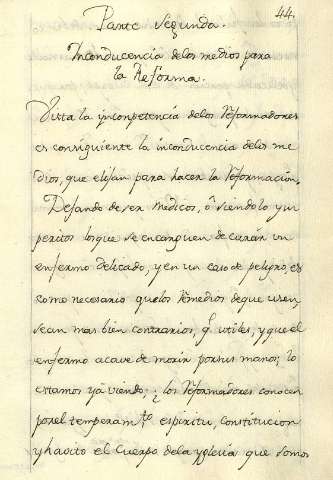 44.
Parte Segunda.
Inconducencia delos medios para
la Reforma.
Vista la inconpetencia delos Reformadores
es consiguiente la inconducencia delos me
dios, que elijan para hacer la Reformación.
Dejando de ser Medicos, ò siendolo ym
peritos losque se encarguen de curár un
enfermo delicado, y en un caso de peligro, es
como necesario quelos Remedios deque usen,
sean mas bien contrarios, q.e utiles, y que el
enfermo acave de morir porsus manos; lo
estamos yá viendo; ¿los Reformadores conocen
por el temperam.to espiritu, constitucion
y havito el Cuerpo dela yglesia que somos